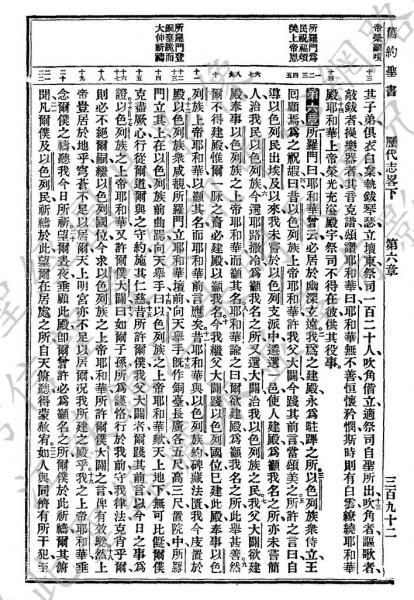 舊約聖書 歷代志畧下 第六章 三百九十二
帝榮顯現
其子弟俱衣白枲執鈸琴瑟立壇東祭司一百二十人吹角偕立適祭司自聖所出吹角者謳歌者
敲鈸者操樂器者其音克諧頌讚耶和華曰耶和華無不善恒懷矜憫斯時則有白雲繚繞耶和華
殿耶和華上帝榮光充溢殿宇祭司不得在彼供其役事
所羅門爲民祝嘏頌美上帝恩
第六章 所羅門曰耶和華曾言必居於幽深玄遠我爲之建殿永爲駐蹕之所以色列族衆侍立王
回顧焉爲之祝嘏曰昔以色列族之上帝耶和華許我父大闢今踐其前言當頌美之所許之言曰自
導以色列民出埃及以來我未嘗於以色列支派中遴選一邑使人建殿爲顧我名之所亦未嘗簡
人治我民以色列族今選耶路撒冷爲顧我名之所又選大闢治我以色列之民我父大闢欲建
殿奉事以色列族之上帝耶和華而顧其名耶和華諭之曰爾欲建殿爲顧我名之所此舉甚善然
爾不得建殿惟爾一脉之裔必建殿以顧我名今我繼父大闢踐以色列國位巳建此殿奉事以色
列族之上帝耶和華以顧其名而耶和華前言應矣昔耶和華與以色列族約碑藏法匱我今庋置於
所羅門登銅臺跪而大伸祈禱
殿以色列族衆咸觀所羅門立耶和華壇前向天舉手製作銅臺長廣各五尺高三尺置院中所羅
門立其上在以色列族前曲跽向天舉手曰以色列族之上帝耶和華歟天上地下無可比儗爾僕
克盡厥心行從爾道爾與之守約施其仁慈昔所許爾僕我父大闢者爾踐其前言以今日之事爲
證以色列族之上帝耶和華又許爾僕大闢曰如爾子孫爲謹恪行於我前守我律法克肖乎爾
則必不絕爾嗣繼以色列國位今求以色列族之上帝耶和華所許爾僕大闢之言俾有效驗然上
帝豈居於地乎穹蒼不足以居爾天上明宮亦不足以居爾况我所建之殿乎我之上帝耶和華垂
念爾僕之禱聽我今日所祈望爾晝夜垂顧此殿卽爾曾許必爲顧名之所爾僕於此祈禱爾其俯
聞凡爾僕及以色列民祈禱於此望爾在居處之所自天俯聽得蒙赦宥如人與同儕有所干犯至